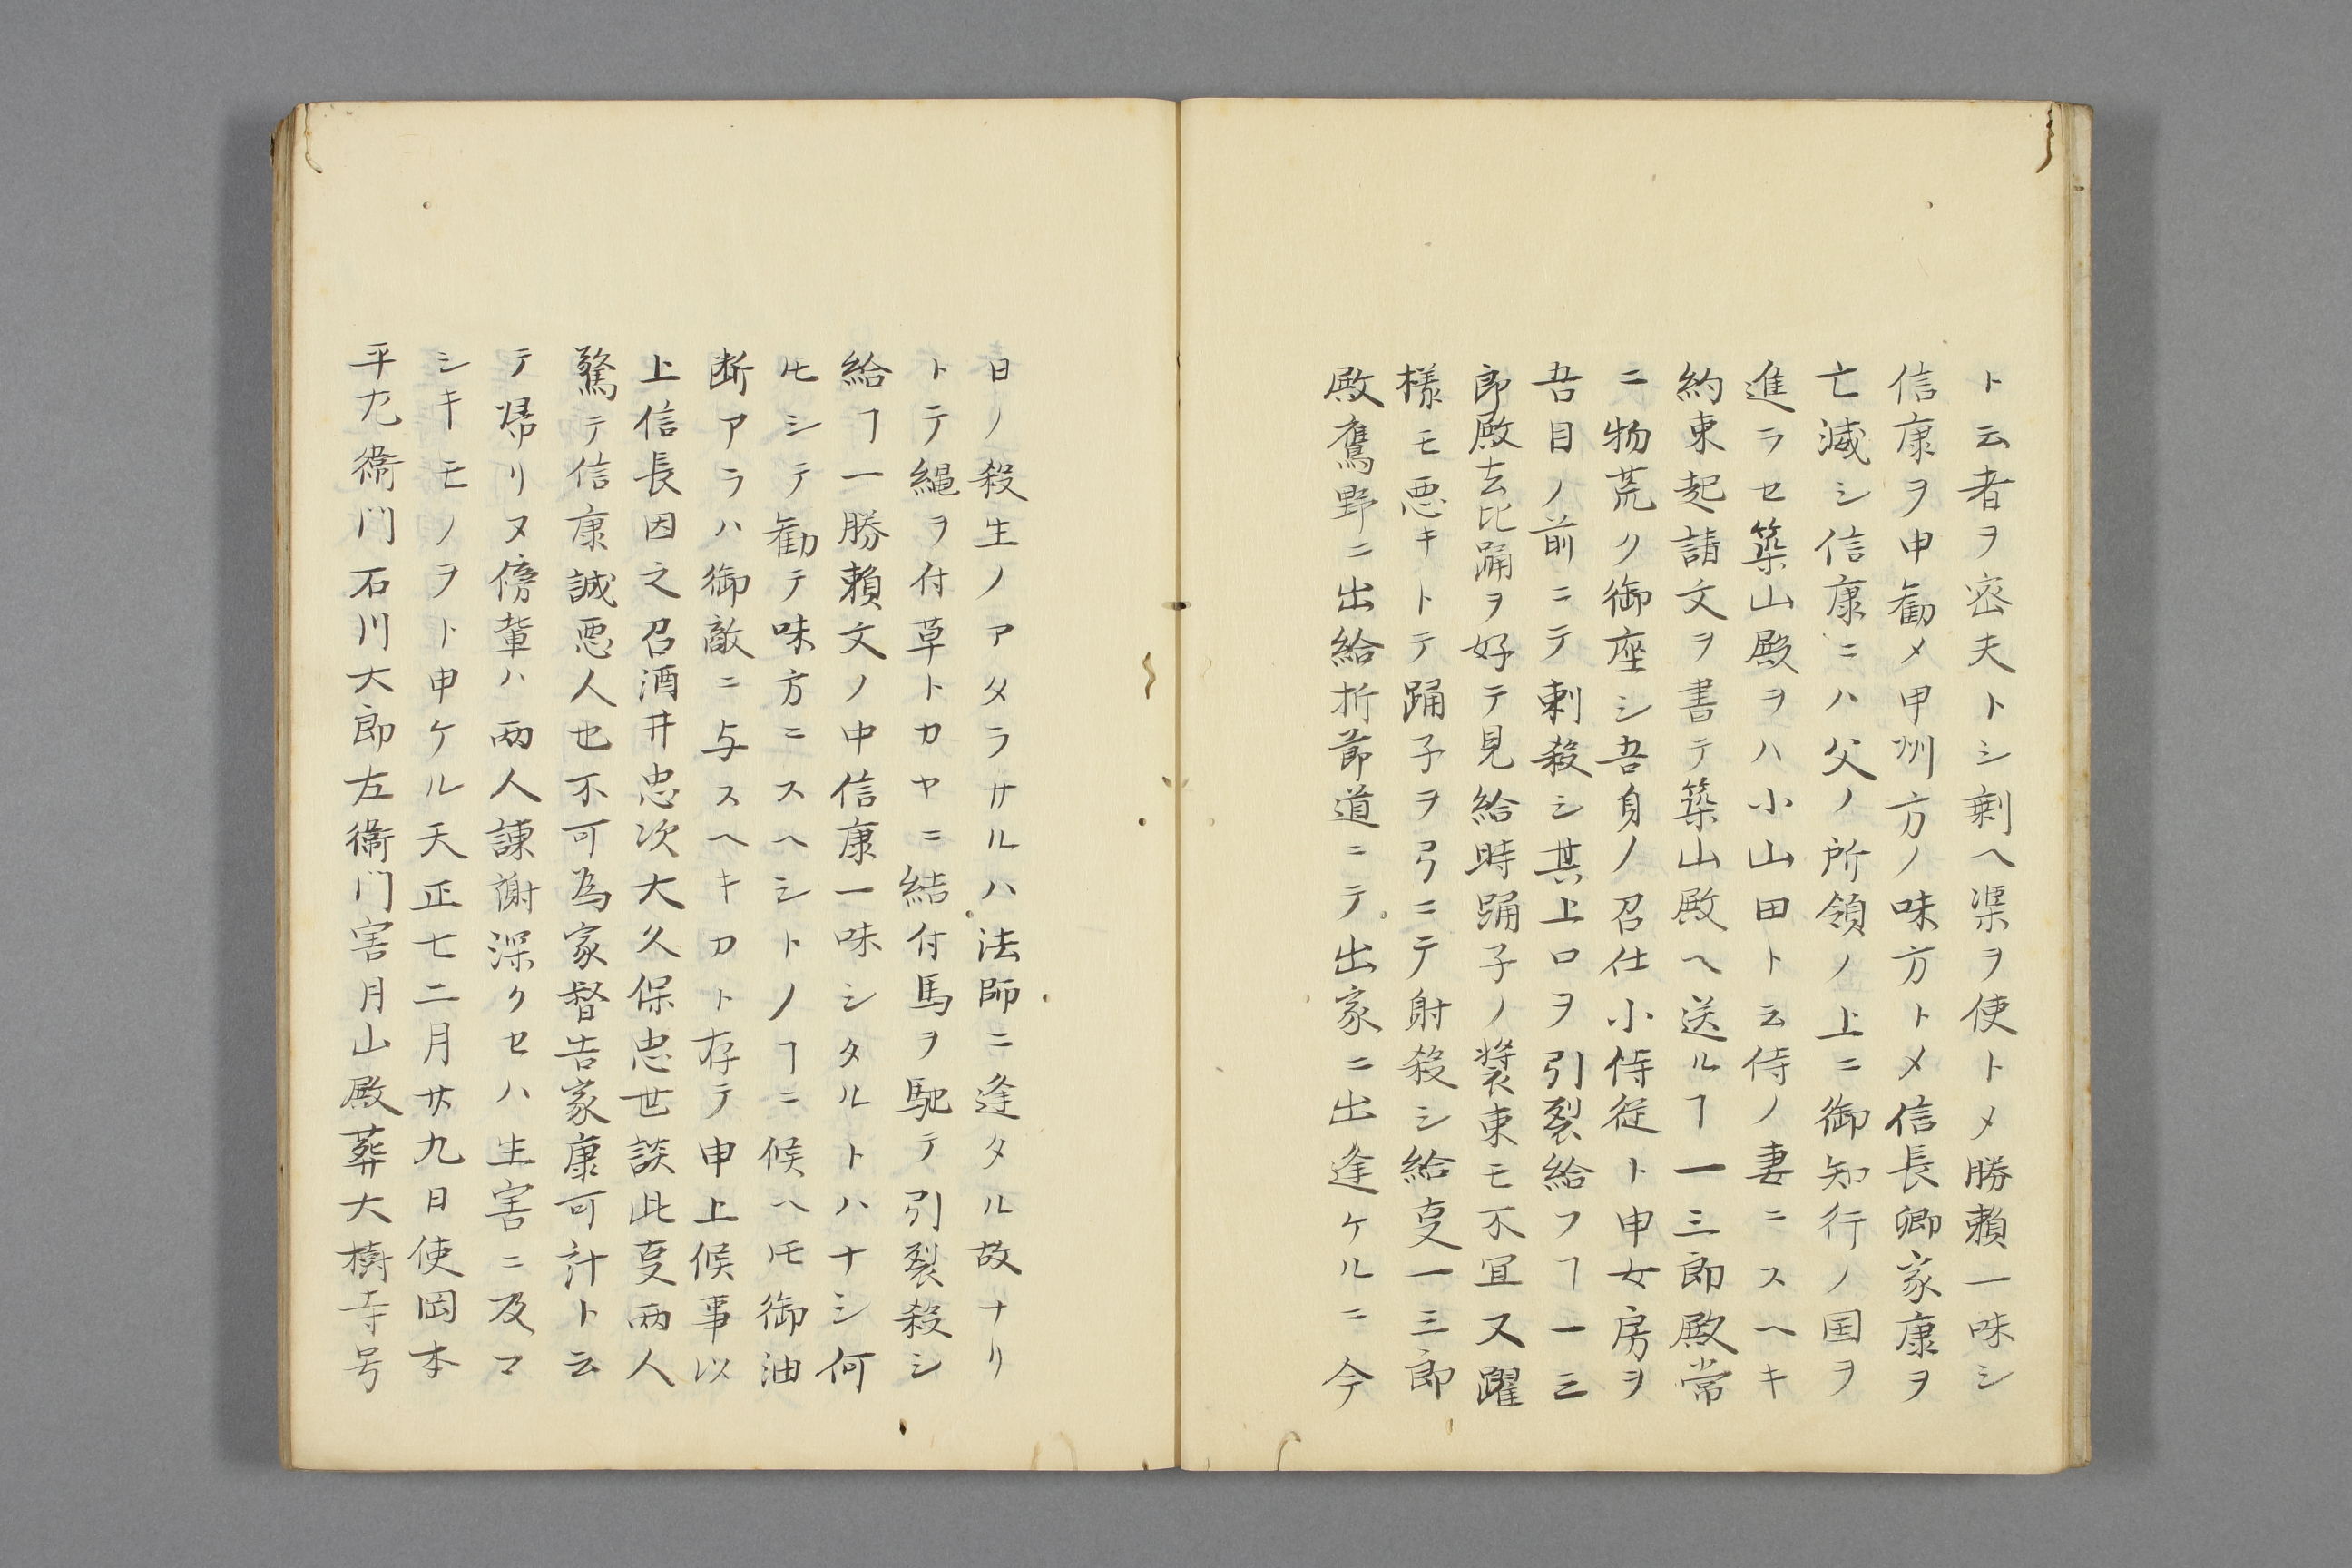 ト云者ヲ密夫トシ剰ヘ渠ヲ使トメ勝頼一味シ
信康ヲ申勧メ甲州方ノ味方トメ信長卿家康ヲ
亡滅シ信康ニハ父ノ所領ノ上ニ御知行ノ国ヲ
進ラセ築山殿ヲハ小山田ト云侍ノ妻ニスヘキ
約束起請文ヲ書テ築山殿ヘ送ルヿ一三郎殿常
ニ物荒ク御座シ吾身ノ召仕小侍従ト申女房ヲ
吾目ノ前ニテ刺殺シ其上口ヲ引裂給フヿ一三
郎殿去比踊ヲ好テ見給時踊子ノ装束モ不宜又躍
様モ悪キトテ踊子ヲ弓ニテ射殺シ給叓一三郎
殿鷹野ニ出給折節道ニテ出家ニ出逢ケルニ今
日ノ殺生ノアタラサルハ法師ニ逢タル故ナリ
トテ縄ヲ付草トカヤニ結付馬ヲ馳テ引裂殺シ
給ヿ一勝頼文ノ中信康一味シタルトハナシ何
圧シテ勧テ味方ニスヘシトノヿニ候ヘ圧御油
断アラハ御敵ニ与スヘキカト存テ申上候事以
上信長因之召酒井忠次大久保忠世談此叓両人
驚テ信康誠悪人也不可為家督告家康可計ト云
テ帰リヌ傍輩ハ両人諌謝深クセハ生害ニ及マ
シキモノヲト申ケル天正七二月廿九日使岡本
平左衛門石川大郎左衛門害月山殿葬大樹寺号